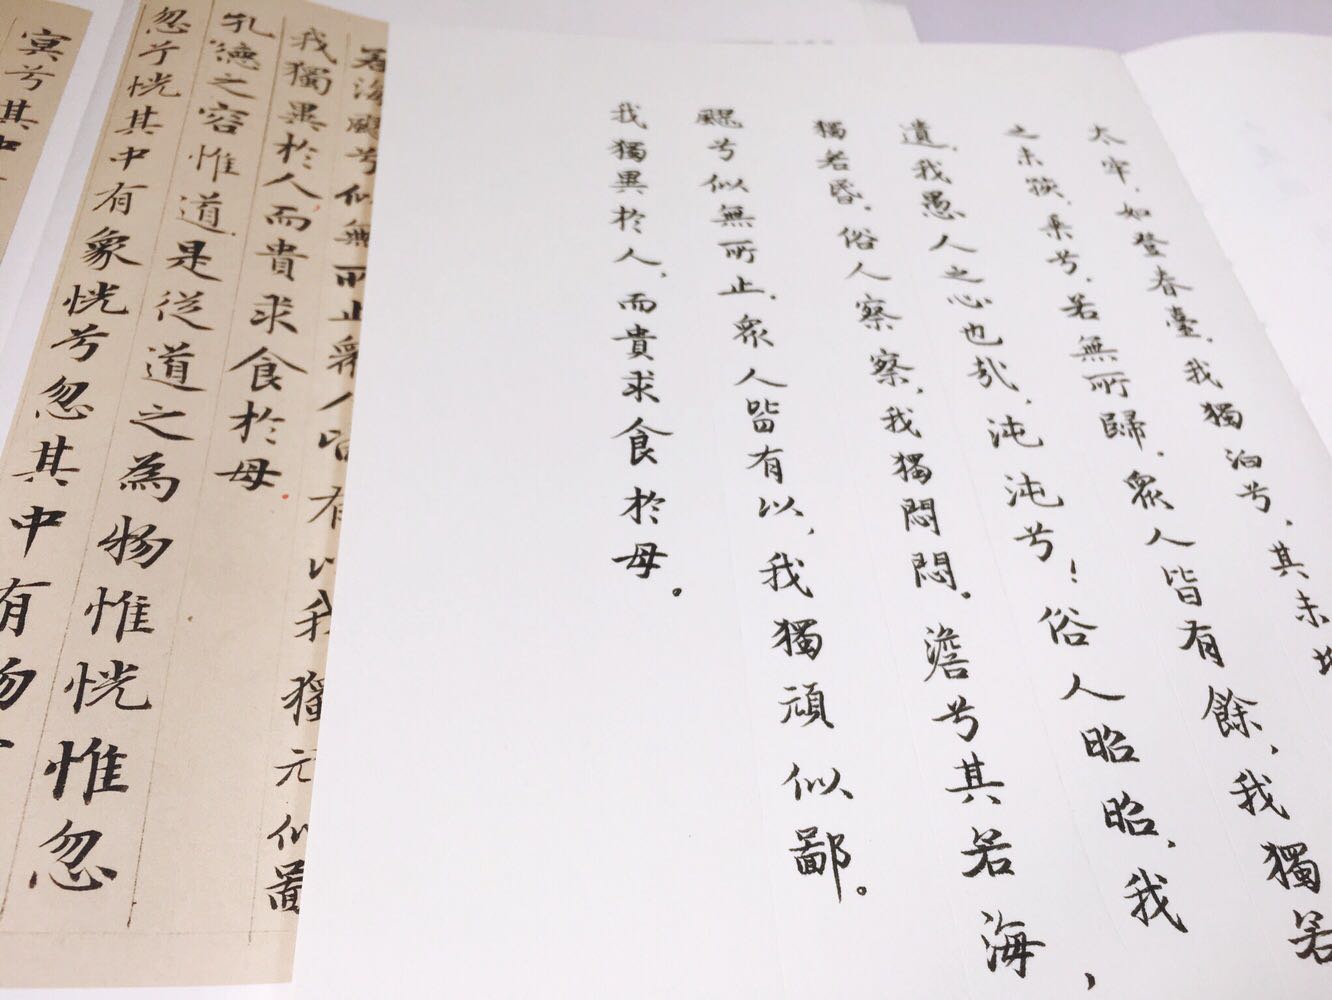 太牢，如登春臺。我獨泊兮，其未
之未孩，乘兮，若無所歸。衆人皆有餘，我獨若
遺。我愚人之心也哉，沌沌兮！俗人昭昭，我
獨若昏。俗人察察，我獨悶悶。澹兮其若海，
飂兮似無所止。衆人皆有以，我獨頑似鄙。
我獨異於人，而貴求食於母。
若海飂兮似無所止衆人皆有以我獨元似鄙
我獨異於人而貴求食於母
孔德之容惟道是從道之為物惟恍惟忽
忽兮恍其中有象恍兮忽其中有物
冥兮其中